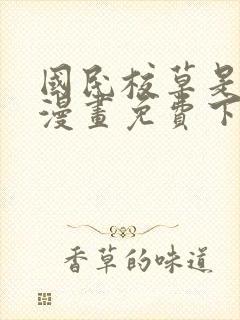 國民校草是
漫畫免費下
香草的味道